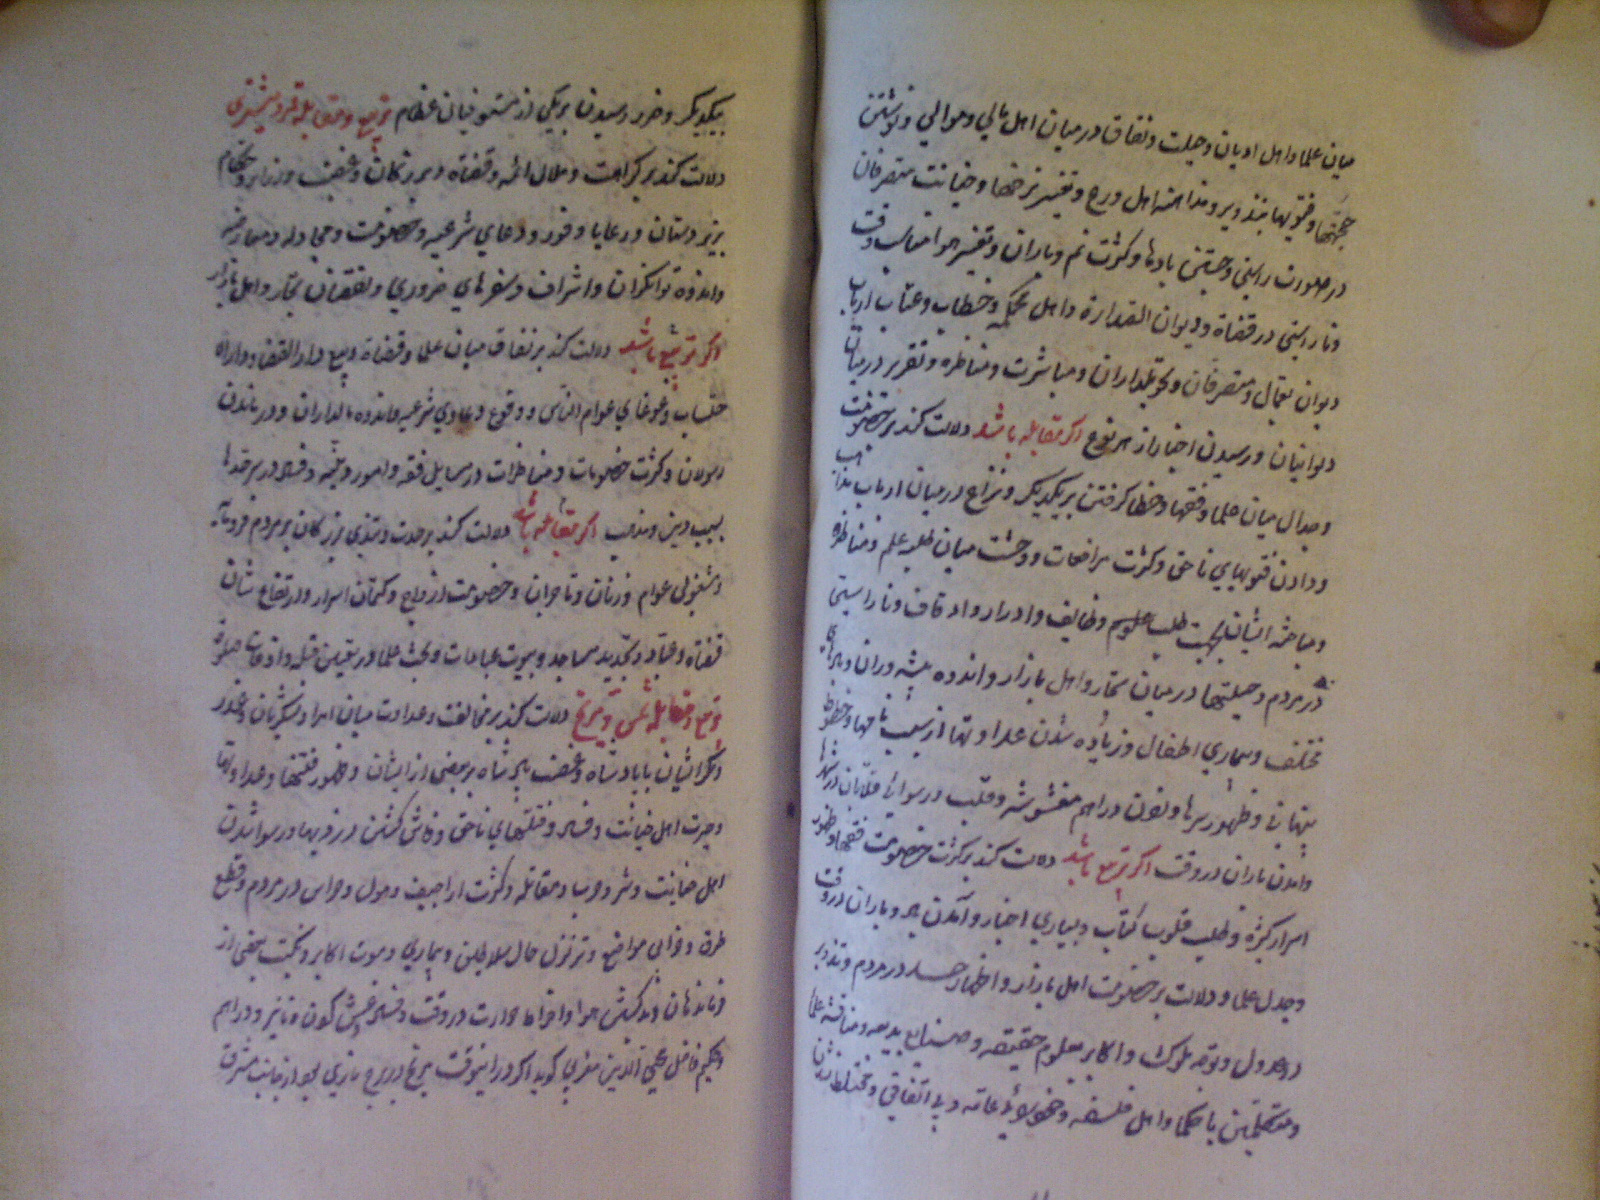 میان علما و اهل ادیان و حیلت و نفاق در میان اهل مالی و موالی و نوشتن
حجتها و فتویها بتزویر و مذمت اهل ورع و تغییر نرخها و خیانت متصرفان
در صورت راستی و جستن بادها و کثرت نم و باران و تغییر هوا مناسب وقت
و ناراستی در قضاة و دیوان القضاة و اهل محکمه و خطاب و عتاب ارباب
دیوان بعمال و متصرفان و تحویلداران و مباشرت و مناظره و تقریر در میان
دیوانیان و رسیدن اخبار از هر نوع اکر مقابله باشد دلالت کند بر خصومت
و جدال میان علما و فقها و خطا کرفتن بر یکدیکر و نزاع در میان ارباب مذاهب
و دادن فتویهای ناحق و کثرت مرافعات و وحشت میان طلبه علم و مناظره
و مباحثه ایشان بجهت طلب علوم وظایف و ادرار و اوقاف و ناراستی
در مردم و حیلتها در میان تجار و اهل بازار و اندوه پیشه وران و
مختلف و بیماری اطفال و زیاده شدن عداوتها از سبب نامها و خطوط
پنهانی و ظهور سرها و نقود دراهم مغشوشه و قلب و رسوائی قلابان در شهرها
و آمدن باران در وقت اکر تربیع باشد دلالت کند بر کثرت خصومت فقها و ظهور
اسرار کثیره و طلب قلوب کتاب و بسیاری اخبار و آمدن ابر و باران در وقت
و جدل علما و دلالت بر خصومت اهل بازار و اظهار حسد در مردم و تزویر
در عدول و توجه ملوک و اکابر بعلوم حقیقه و صنایع بدیعه و مناقشه علما
و متکلمین با حکما و اهل فلسفه و عامه و بی اتفاقی و مختلط شدن
بیکدیکر و ضرر رسیدن بریکی از مستوفیان عظام تربیع و مقابله قمر و مشتری
دلالت کند بر کراهت و ملال ائمه و قضاة و بزرکان و غضب وزرا بر حکام
بر زیردستان و رعایا و قور و دعاوی شرعیه و خصومت و مجادله و معارضه
و اندوه توانکران و اشراف و سفرهای ضروری و نقصان تجار و اهل بازار
اکر تربیع باشد دلالت کند بر نفاق میان علما و قضاة و بیع دار القضا و دارائی
حساب و غوغای عوام الناس و وقوع دعاوی شرعیه و اندوه مالداران و در ماندن
رسولان و کثرت خصومات و مناظرات در مسایل فقه و امور دینیه و فساد در سرحدها
بسبب دین و مذهب اکر مقابله باشد دلالت کند بر حدت و تندی بزرکان بر مردم فرومایه
و مشغولی عوام و زنان و تاجران و خصومت ازواج و کتمان اسرار و ارتفاع شان
قضاة و عباد و تجدید مساجد و بیوت عبادات و بحث علما در تعیین قبله و اوقات صلوة
تربیع و مقابله شمس و مریخ دلالت کند بر مخالفت و عداوت میان امرا و لشکریان و غدر
و مکر ایشان با پادشاه و غضب پادشاه بر بعضی از ایشان و ظهور فتنها و عداوتها
و جرات اهل خیانت و فساد و قتلهای ناحق و فاش کشتن دزدیها و رسوا شدن
اهل خیانت و شر و حرب و مقاتله و کثرت اراجیف و هول و هراس در مردم و قطع
طرق و خرابی مواضع و تزلزل حال سلاطین و بیماری و موت اکابر و نکبت بعضی از
فرماندهان و کشش هوا و افراط حرارت در وقت و غش کردن دنانیر و دراهم
و حکیم فاضل محیی الدین مغربی کوید اکر درین وقت مریخ در برج ناری بود از جانب مشرق